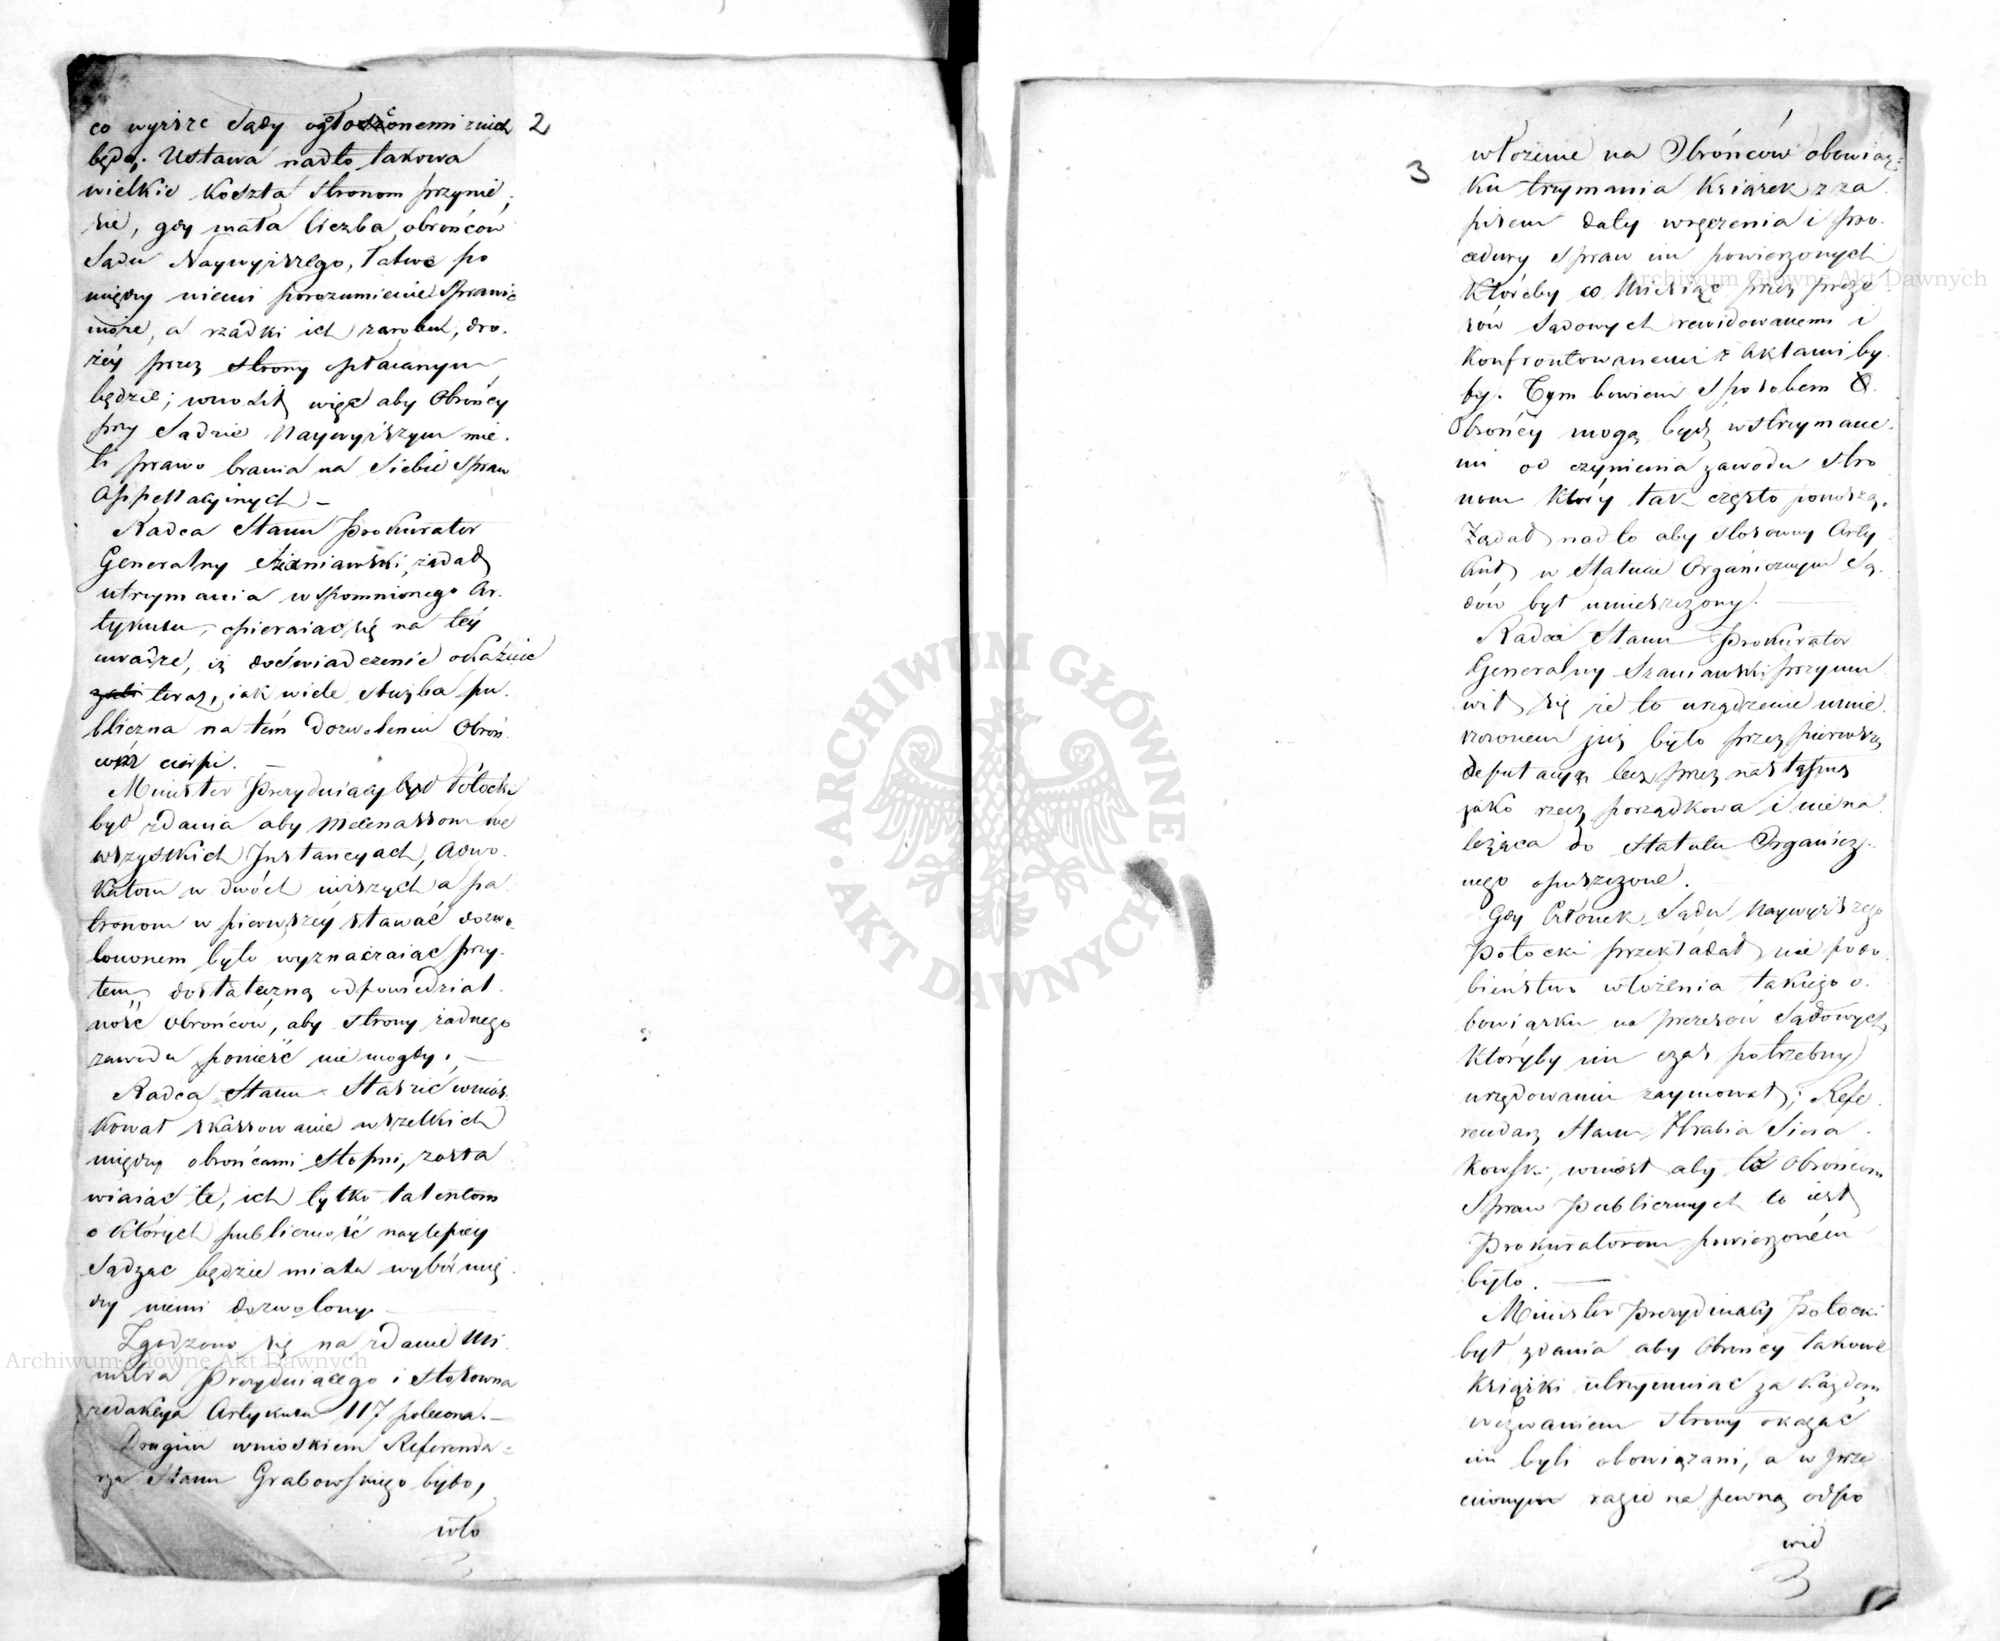 2
co wyższe Sądy ogłoszonemi
będą. Ustawa nadto takowa
wielkie koszta stronom przynie,
sie, gdy mała liczba obrońców
Sądu Naywyższego, łatwo po
między niemi porozumienie sprawić
może, a rzadki ich zarobek, dro.
żéy przez strony opłacanym
będzie; wnosił więc aby Obrońcy
przy Sądzie Naywyiższym mie.
li prawo brania na Siebie Spraw
Appellacyinych –
Radca Stanu Prokurator
Generalny Szaniawski, żądał
utrzymania wspomnionego Ar.
tykułu, opieraiąc się na téy
uwadze, iż doświadczenie okaźuie
teraz, iak wiele służba pu.
bliczna na tém dozwoleniu Obroń
ców cierpi. –
Minister Prezyduiący Potocki
był zdania aby Mecenassom we
wszystkich Instancyach, Adwo.
katom w dwóch niższych a pa
tronom w pierwszéy stawać dozwo.
lononem było wyznaczaiąc przy.
tem dostateczną odpowiedzial.
ność Obrońców, aby strony żadnego
zawodu ponieść nie mogły. –
Radca Stanu Staszic wnios.
kował skassowanie wszelkich
między obrońcami stopni, zosta
wiaiąc te, ich tylko talentom
o których publiczność naylepiéy
Sądząc będzie miała wybór mię.
dzy niemi dozwolony –
Zgodzono się na zdanie Mi.
nistra Prezyduiącego i stosowna
redakcya Artykułu 117 polecona. –
Drugim wnioskiem Referenda-
rza Stanu Grabowskiego było,
wło
3
włożenie na Obrońców obowiąz-
ku trzymania Książek z za
pisem daty wręczenia i pro.
cedury spraw im powierzonych
któreby co Miesiąc przez preze
sów Sądowych rewidowanemi i
Konfrontowanemi z Aktami by.
ły. Tym bowiem sposobem
Obrońcy mogą bydź wstrzymane.
mi od czynienia zawodu stro
nom który tak często ponoszą.
Żądał nadto aby stosowny Arty
kuł w Statucie Organicznym Są.
dów był umieszczony. –
Radca Stanu Prokurator
Generalny Szaniawski przymó
wił się że to urządzenie umie.
szczonem już było przez pierwszą
deputacyą lecz przez następną
jako rzecz porządkowa i niena.
leżąca do Statutu Organicz.
nego opuszczone.
Gdy Członek Sądu Naywyższego
Potocki przekładał nie podo.
bieństwo włożenia takiego o.
bowiązku na prezesów Sądowych,
któryby im czas potrzebny
urzędowaniu zaymował; Refe.
rendarz Stanu Hrabia Siera
kowski, wniósł aby to Obrońcom
Spraw Publicznych to iest
Prokuratorom powierzoném
było. –
Minister Prezyduiący Potocki
był zdania aby Obrońcy takowe
Książki utrzymuiąc za każdem
wezwaniem strony okazać
im byli obowiązani, a w prze
ciwnym razie na pewną odpo
wied
ARCHIWUM GŁÓWNE AKT DAWNYCH
Archiwum Główne Akt Dawnych
Archiwum Główne Akt Dawnych